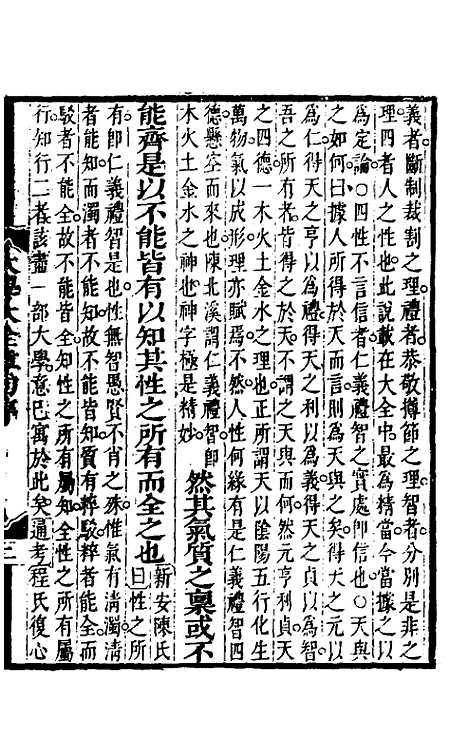 義者斷制裁割之理禮者恭敬撙節之理智者分別是非之
理四者人之性也此說載在大全中最爲精當今當據之以
爲定論○四性不言信者仁義禮智之實處卽信也○天與
之如何曰據人所得於天而言則爲天與之矣得天之元以
爲仁得天之亨以爲禮得天之利以爲義得天之貞以爲智
吾之所有者皆得之於天不謂之天與而何然元亨利貞天
之四德一木火土金水之理也正所謂天以陰陽五行化生
萬物氣以成形理亦賦焉不然人性何緣有是仁義禮智四
德懸空而來也陳北溪謂仁義禮智卽
木火土金水之神也神字極是精妙
然其氣質之稟或不
能齊是以不能皆有以知其性之所有而全之也
新安陳氏
曰性之所
有卽仁義禮智是也性無智愚賢不肖之殊惟氣有淸濁淸
者能知而濁者不能知故不能皆知質有粹駁粹者能全而
駁者不能全故不能皆全知性之所有屬知全性之所有屬
行知行二者該盡一部大學意已寓於此矣通考程氏復心
大學大全章句序
三